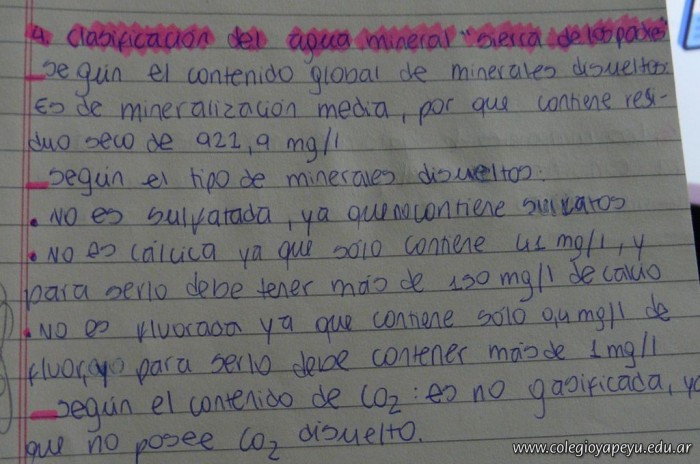 4. Clasificación del agua mineral "sierra de los padres"
- según el contenido global de minerales disueltos:
Es de mineralización media, por que contiene resi-
duo seco de 921,9 mg/l
- según el tipo de minerales disueltos:
• NO es sulfatada, ya que no contiene sulfatos
• NO es cálcica ya que sólo contiene 41 mg/l, y
para serlo debe tener más de 150 mg/l de calcio
• NO es fluorada ya que contiene sólo 0,4 mg/l de
fluor, para serlo debe contener más de 1 mg/l
- según el contenido de CO2: es no gasificada, ya
que no posee CO2 disuelto.
www.colegioyapeyu.edu.ar